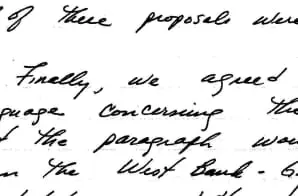 of these proposals were
Finally, we agreed
guage concerning the
the paragraph wou
the West Bank - G